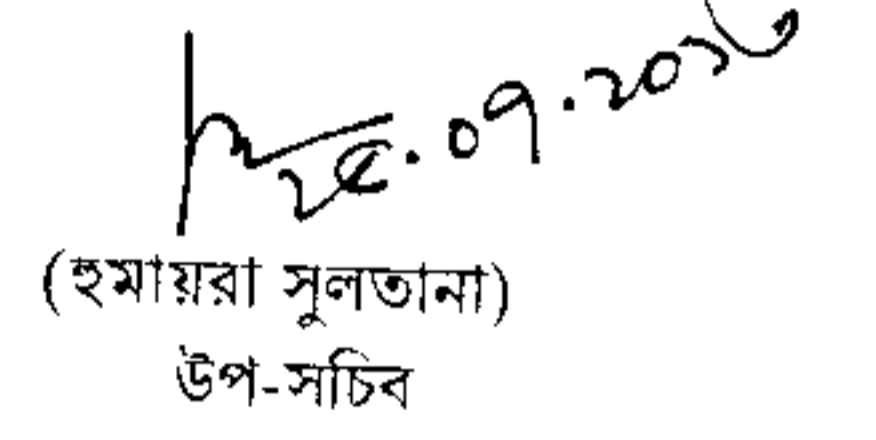 ২৫.০৭.২০১৬
(হুমায়রা সুলতানা)
উপ-সচিব